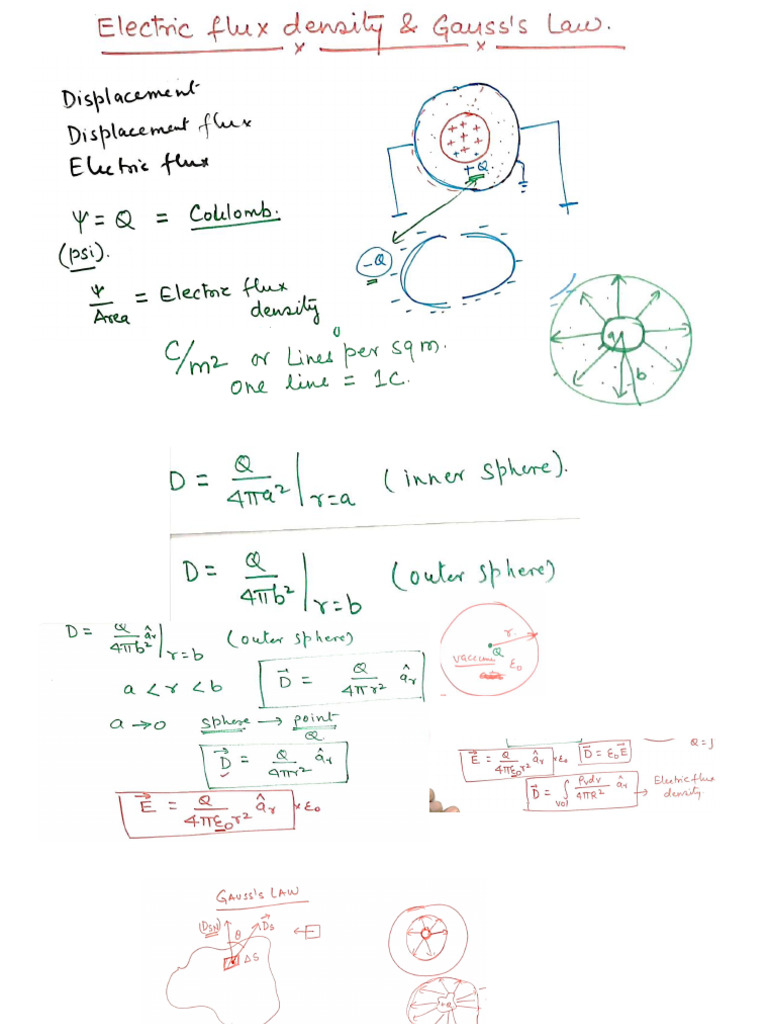 Electric flux density & Gauss's Law.
Displacement
Displacement flux
Electric flux
Ψ = Q = Coulomb.
(psi).
Ψ/Area = Electric flux density
C/m2 or Lines per sqm.
one line = 1C.
+ + +
+ + + +
+ + +
+Q
-Q
a
b
D = Q/4πa² |r=a (inner sphere).
D = Q/4πb² |r=b (outer sphere)
D = Q/4πb² âr |r=b (outer sphere)
a < r < b
D⃗ = Q/4πr² âr
a → 0 sphere → point
Q
D⃗ = Q/4πr² âr
E⃗ = Q/4πε0r² âr × ε0
r
Q
ε0
E⃗ = Q/4πε0r² âr × ε0
D⃗ = ε0E⃗
Q = ∫
D⃗ = ∫vol ρvdv/4πR² âr → Electric flux density
GAUSS'S LAW
(DSN)
θ
D⃗s
ΔS
+Q